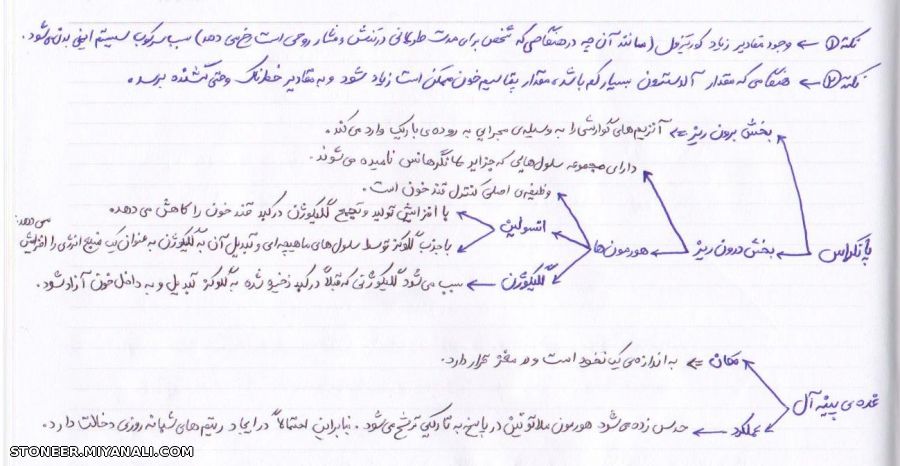 نکته ① ← وجود مقادیر زیاد کورتیزول (مانند آن چه در هنگامی که شخص برای مدت طولانی در تنش و فشار روحی است رخ می دهد) سبب سرکوب سیستم ایمنی بدن می شود.
نکته ② ← هنگامی که مقدار آلدوسترون بسیار کم باشد، مقدار پتاسیم خون ممکن است زیاد شود و به مقادیر خطرناک و حتی کشنده برسد.
پانکراس
بخش برون ریز ⇐ آنزیم های گوارشی را به وسیله ی مجرایی به روده ی باریک وارد می کند.
بخش درون ریز
دارای مجموعه سلول هایی که جزایر لانگرهانس نامیده می شوند.
هورمون ها
وظیفه ی اصلی کنترل قند خون است.
انسولین
با افزایش تولید و تجمع گلیکوژن در کبد قند خون را کاهش می دهد.
با جذب گلوکز توسط سلول های ماهیچه ای و تبدیل آن به گلیکوژن به عنوان یک منبع انرژی را افزایش می دهد.
گلیکوژن ← سبب می شود گلیکوژنی که قبلاً در کبد ذخیره شده به گلوکز تبدیل و به داخل خون آزاد شود.
غده ی پینه آل
مکان ⇐ به اندازه ی یک نخود است و در مغز قرار دارد.
عملکرد ← حدس زده می شود هورمون ملاتونین در پاسخ به تاریکی ترشح می شود. بنابراین احتمالاً در ایجاد ریتم های شبانه روزی دخالت دارد.
STONEER.MIYANALI.COM